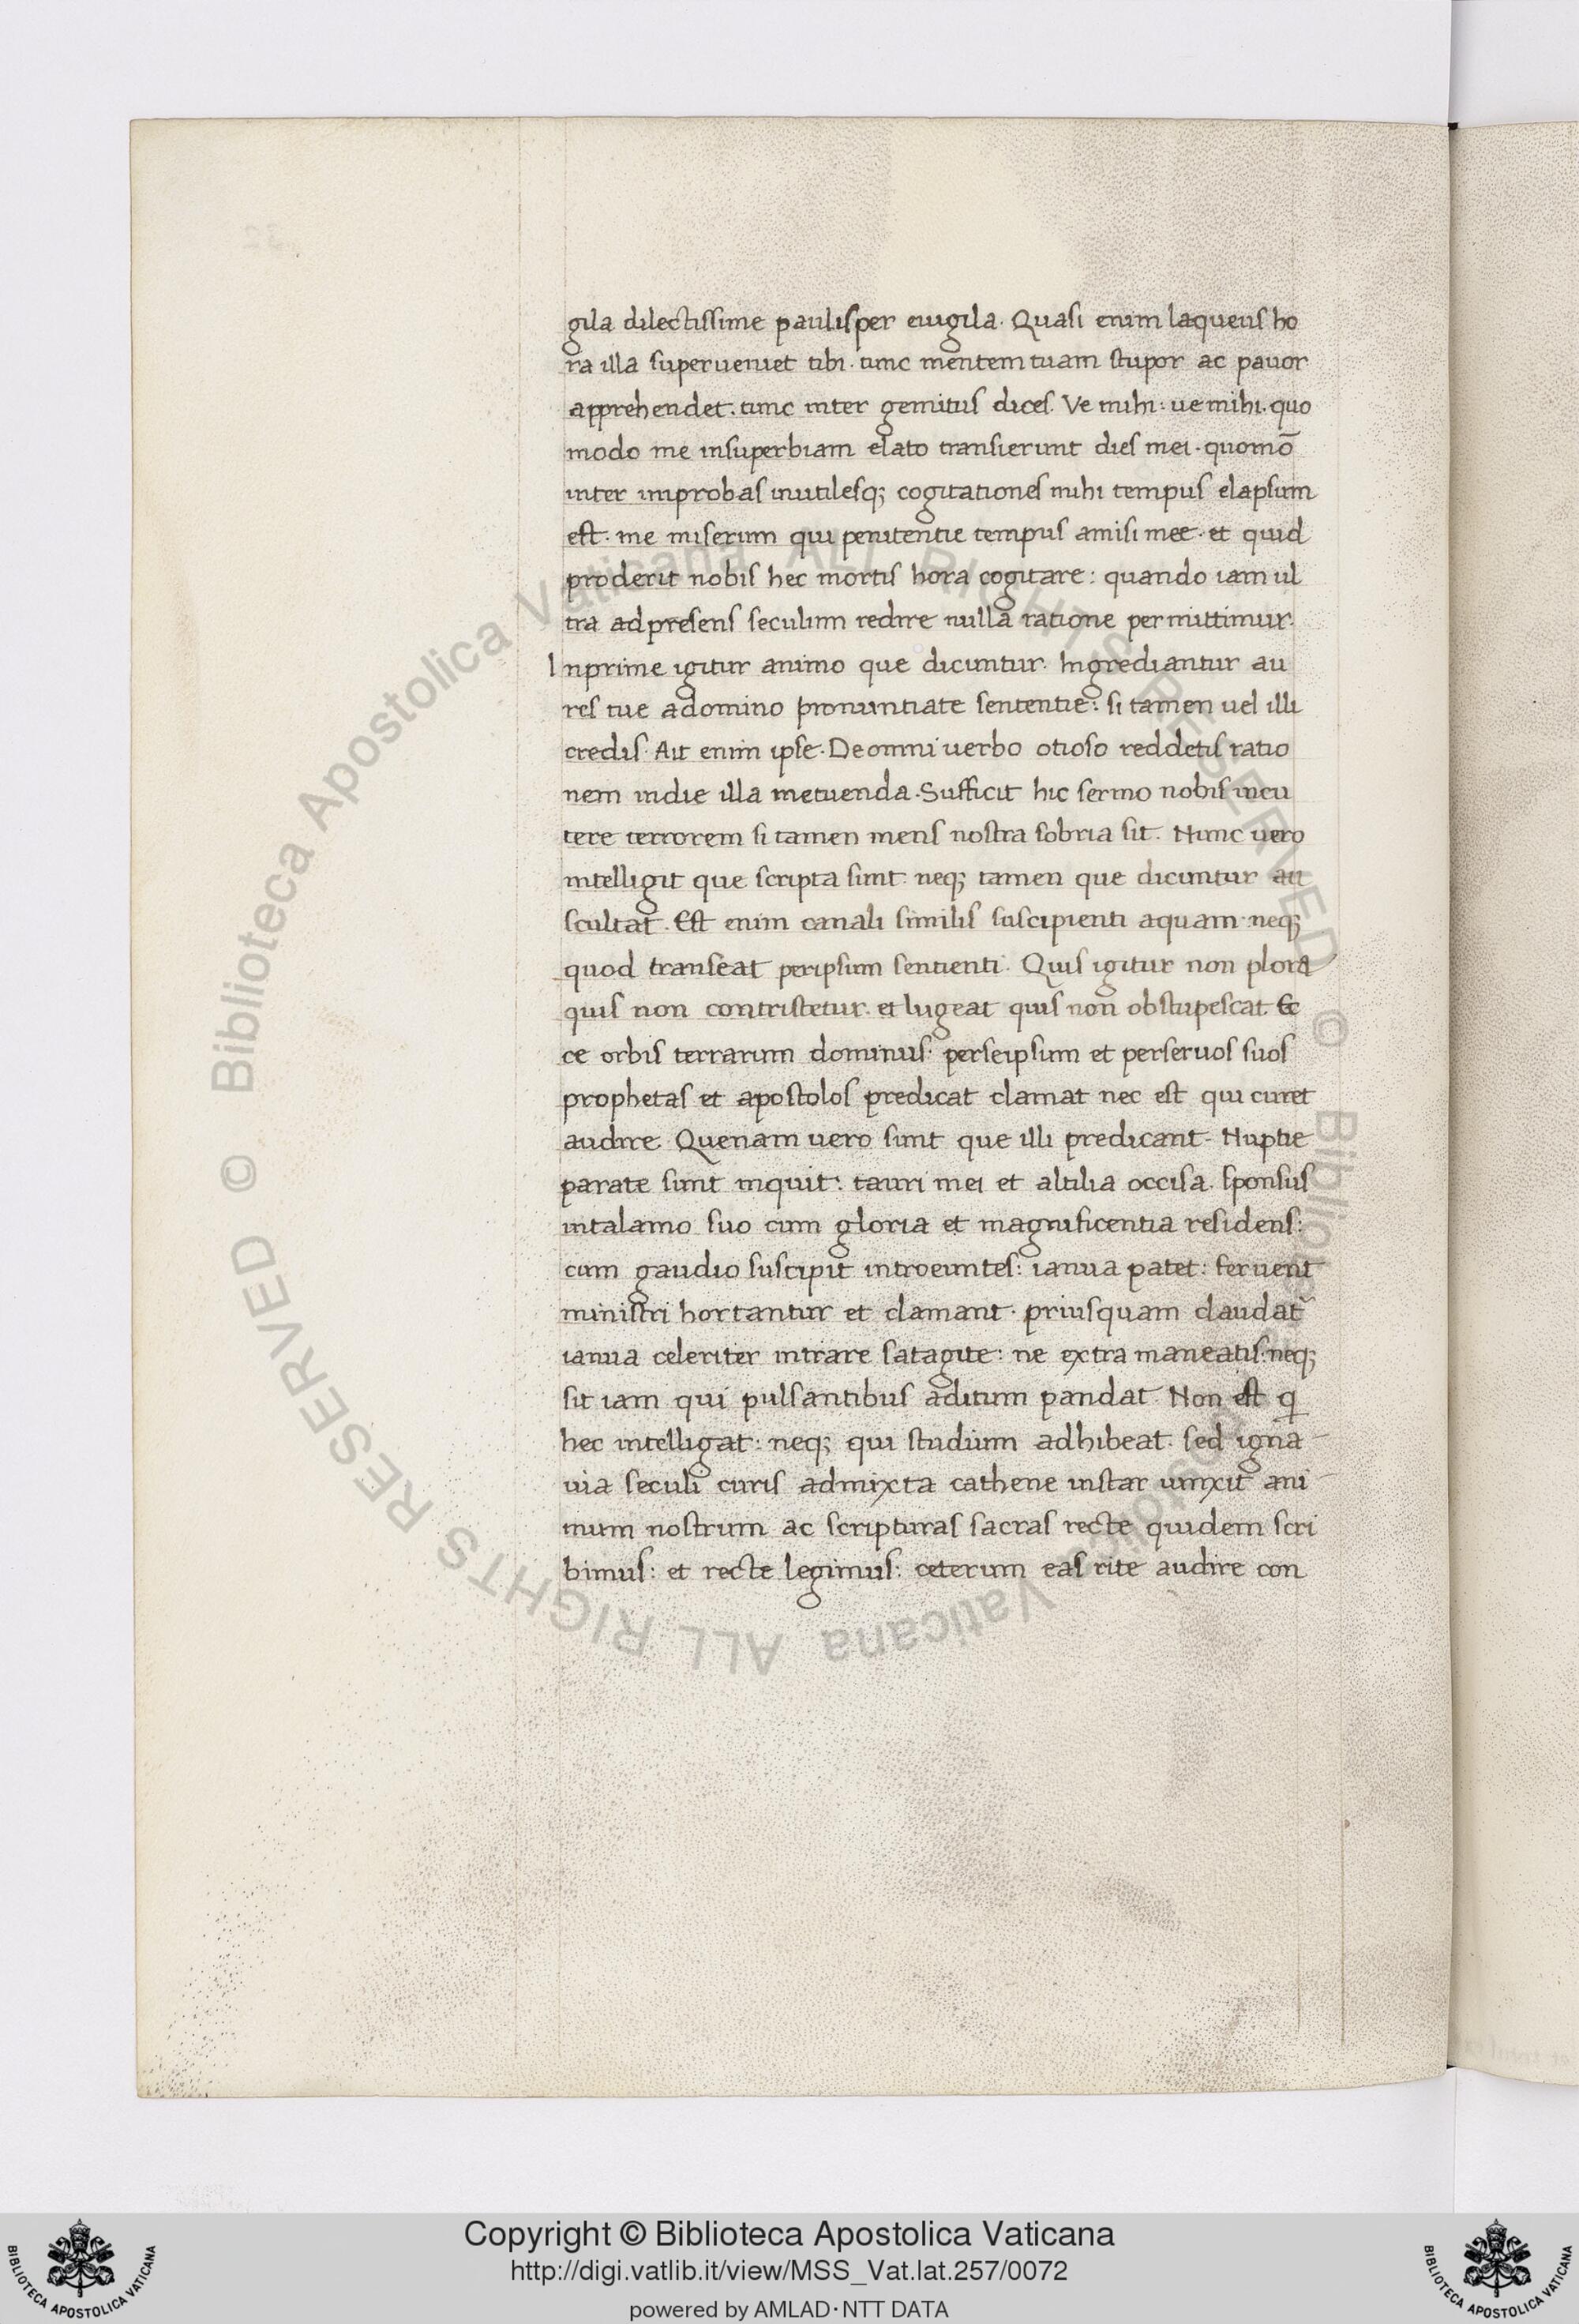 gila dilectissime paulisper euigila. Quasi enim laqueus ho
ra illa superueniet tibi. tunc mentem tuam stupor ac pauor
apprehendet. tunc inter gemitus dices. Ve mihi: ue mihi. quo
modo me insuperbiam elato transierunt dies mei. quomō
inter improbas inutilesq; cogitationes mihi tempus elapsum
est. me miserum qui penitentie tempus amisi mee. et quid
proderit nobis hec mortis hora cogitare: quando iam ul
tra ad presens seculum redire nulla ratione permittimur.
Inprime igitur animo que dicuntur. Ingrediantur au
res tue adomino pronuntiate sententie: si tamen uel illi
credis. Ait enim ipse. De omni uerbo otioso reddetis ratio
nem indie illa metuenda. Sufficit hic sermo nobis incu
tere terrorem si tamen mens nostra sobria sit. Nunc uero
intelligit que scripta sunt. neq; tamen que dicuntur au
scultat. Est enim canali similis suscipienti aquam. neq;
quod transeat peripsum sentienti. Quis igitur non plora
quis non contristetur. et lugeat quis non obstupescat. Ec
ce orbis terrarum dominus. perseipsum et perseruos suos
prophetas et apostolos predicat clamat nec est qui curet
audire. Quenam uero sunt que illi predicant. Nuptie
parate sunt inquit: tauri mei et altilia occisa. sponsus
intalamo suo cum gloria et magnificentia residens:
cum gaudio suscipit introeuntes: ianua patet: feruent
ministri hortantur et clamant. priusquam claudat᷑
ianua celeriter intrare satagite: ne extra maneatis: neq;
sit iam qui pulsantibus aditum pandat. Non est q
hec intelligat: neq; qui studium adhibeat. sed igna
uia seculi curis admixta cathene instar uinxit ani
mum nostrum ac scripturas sacras recte quidem scri
bimus: et recte legimus: ceterum eas rite audire con
© Biblioteca Apostolica Vaticana ALL RIGHTS RESERVED © Biblioteca Apostolica Vaticana ALL RIGHTS RESERVED
BIBLIOTECA APOSTOLICA VATICANA
Copyright © Biblioteca Apostolica Vaticana
http://digi.vatlib.it/view/MSS_Vat.lat.257/0072
powered by AMLAD·NTT DATA
BIBLIOTECA APOSTOLICA VATICANA